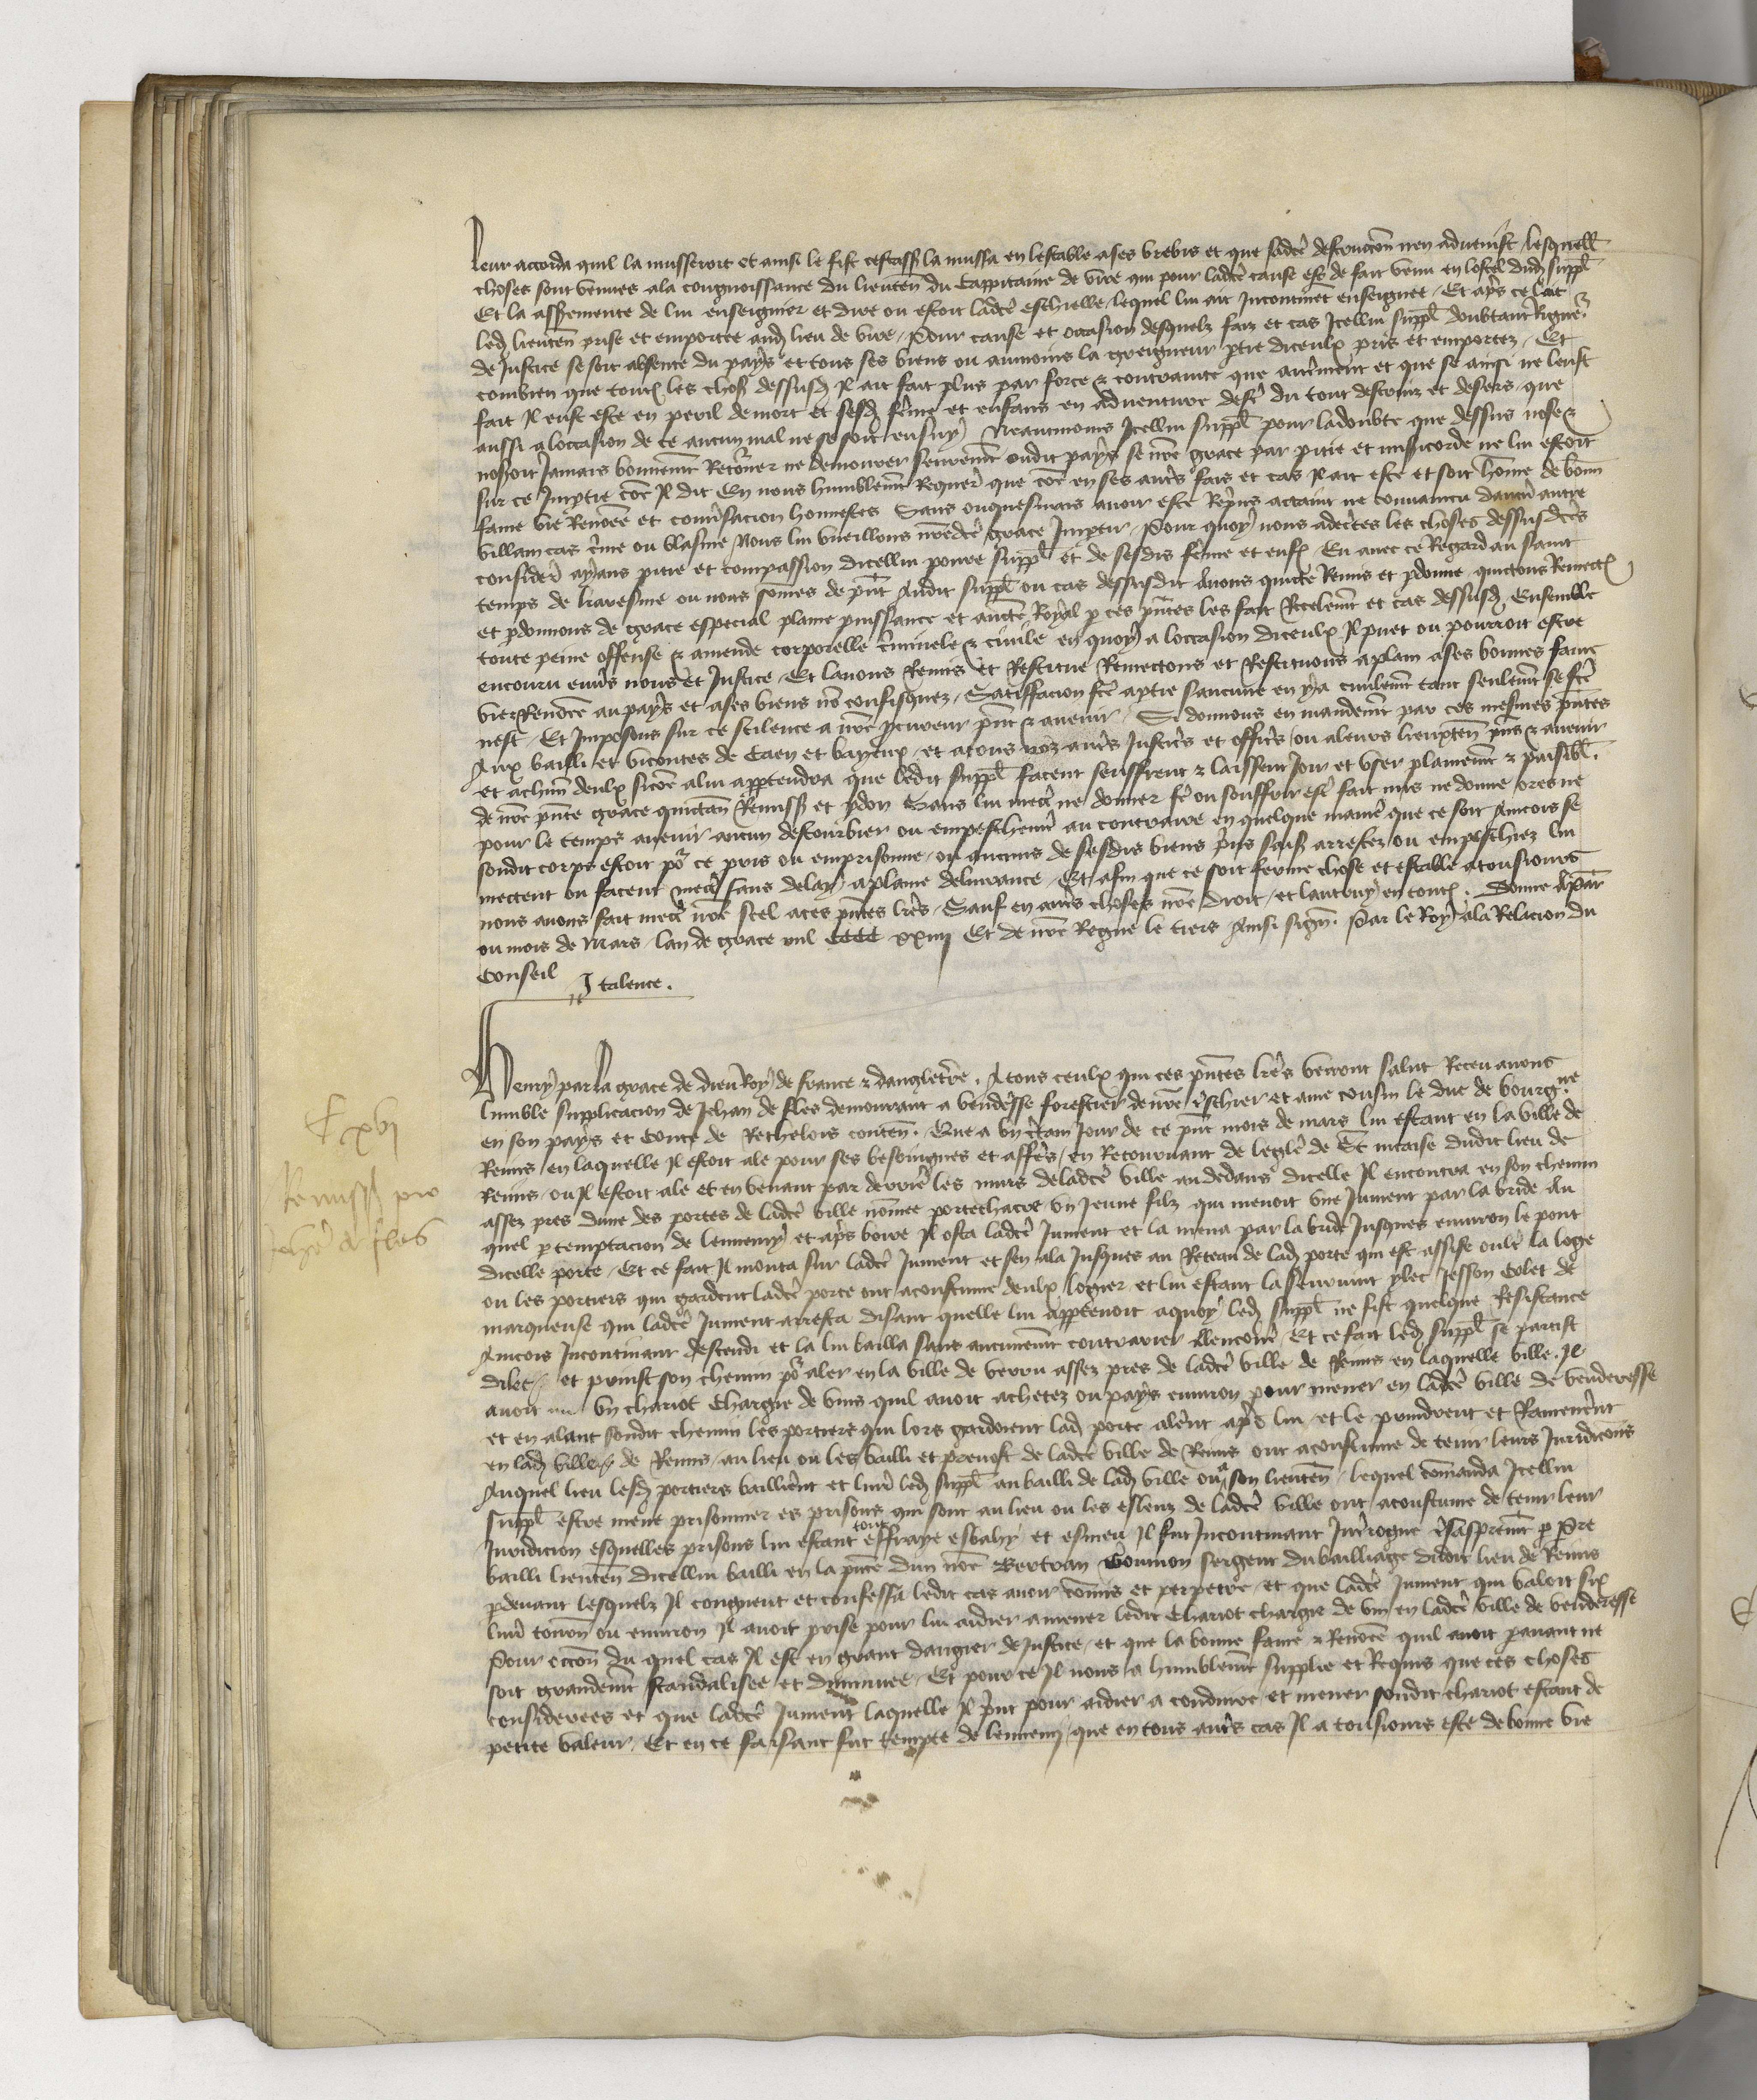 leur accorda quil la musseroit et ainsi le fist cestass la mussa en lestable a ses brebis et que ladcẽ destruccõn nen advenist / lesquell
choses sont venues a la congnoissance du lieuten̄ du Cappitaine de vire qui pour ladcẽ cause est de fait venu en lostel dud suppl
Et la asprement de lui enseignier et dire ou estoit ladcẽ eschielle / lequel lui ait Incontinẽt enseignee / Et apr̃s ce lait
led lieuten̄ prise et emportee aud lieu de vire / Pour cause et occasion desquelz faiz et cas Icellui suppl doubtant Rigue'
de Justice se soit absente du pays et tous ses biens ou aumoins la greigneur ptie diceulx pris et emportez / Et
combien que toutes les choses dessusd Il ait fait plus par force & contrainte que autrement et que se ainsi ne leust
fait Il eust este en peril de mort et sesd fẽme et enfans en adventure destr̃ du tout destruiz et desers / que
aussi a loccasion de ce aucun mal ne se soit ensuy / Neantmoins Icellui suppl pour la doubte que dessus nose &
noseroit Jamais bonnemt Retõner ne demourer seuremt oudit pays se nr̃e grace par pitie et misicorde ne lui estoit
sur ce Impartie cõe Il dit En nous humblemt Requerãt que cõe en ses autr̃s fais et cas Il ait este et soit hõme de bonñ
fame vie Renõmee et conũsacion honnestes Sans onquesmais avoir este Repris actaint ne convaincu daucũ autre
villain cas crĩme ou blasme / Nous lui vueillons nr̃edcẽ grace Impartir / Pour quoy nous adecẽs les choses dessusdcẽs
considerẽ ayans pitie et compassion dicellui povre suppl et de sesdis fẽme et enfs / En avec ce Regard au saint
temps de karesme ou nous sõmes de pñt Audit suppl ou cas dessusdit Avons quicte Remis et pdonne quictons Remectõs
et pdonnons de grace especial plaine puissance et aucte Royal p ces pñtes les fait Recelemt et cas dessusd Ensemble
toute peine offense & amende corporelle crĩminele & civile en quoy a loccasion diceulx Il puet ou pourroit estre
encouru envers nous et Justice / Et lavons Remis et Restitue Remectons et Restituons a plain a ses bonnes fame
vie & Renõmee au pays et a ses biens nõ confisquez / Satisfacion fcẽ a ptie sаucune en ya civilemt tant seulemt se fcẽ
nest / Et Imposons sur ce scilence a nr̃e procureur pñt & avenir / Si donnons en mandemt par ces mesmes pñtes
Aux bailli et vicontes de Caen et bayeux / et a tous noz autr̃s Justicr̃s et officr̃s / ou a leurs lieuxten̄ pñs & avenir
et a chũn deulx sicõe a lui appartendra que ledit suppl facent seuffrent & laissent Joir et user plainemt & paisibl
de nr̃e pñte grace quictan̄ Remiss et pdon Sans lui mectr̃ ne donner fẽ ou souffrir estr̃ fait mis ne donne ores ne
pour le temps avenir aucun destourbier ou empeschemt au contraire en quelque manier̃ que ce soit Aincois se
sondit corps estoit po' ce pris ou emprisonne / ou aucuns de sesdis biens pr̃s saisis arrestez / ou empeschiez lui
mectent ou facent mectr̃ sans delay a plaine delivrance / Et afin que ce soit ferme chose et estable a tousiours
nous avons fait mectr̃ nr̃e scel a ces pñtes lr̃es / Sauf en autr̃s choses nr̃e droit / et lautruy en toutes / Donne A par̃
ou mois de Mars / lan de grace mil CCCC xxiiij Et de nr̃e Regne le tiers Ainsi sign̄ . Par le Roy a la Relacion du
Conseil
J talence .
Henry par la grace de dieu Roy de france & dangletr̃re . A tous ceulx qui ces pñtes lr̃es verront salut Receu avons
lumble supplicacion de Jehan de fles demourant a venderesse forestier de nr̃e trẽschier et ame cousin le duc de bourgne
en son pays et Conte de Rethelois conten̄ . Que a un certain Jour de ce pñt mois de mars lui estant en la ville de
Reims en laquelle Il estoit ale pour ses besoingnes et affer̃s / en Retournant de leglẽ de St nicaise dudit lieu de
Reims / ou Il estoit ale et en venant par derrier̃ les murs de ladcẽ ville au dedans dicelle Il encontra en son chemin
assez pres dune des portes de ladcẽ ville nõmee portechacre un Jeune filz qui menoit une Jument par la bride Au
quel p temptacion de lennemy et apr̃s boire Il osta ladcẽ Jument et la mena par la bride Jusques environ le pont
dicelle porte / Et ce fait Il monta sur ladcẽ Jument et sen ala Jusques au Reteau de lad porte qui est assise oultr̃ la loge
ou les portiers qui gardent ladcẽ porte ont acoustume deulx logier / et lui estant la seurvint ylec Jesson Colet de
marqueuse qui ladcẽ Jument arresta disant quelle lui appartenoit a quoy led suppl ne fist quelque Resistance
Aincois Incontinant descendi et la lui bailla sans aucunemt contrarier allencontr̃ / Et ce fait led suppl se partist
dilec / et prinst son chemin po' aler en la ville de verru assez pres de ladcẽ ville de Reims en laquelle ville Il
avoit un chariot Chargie de vins quil avoit achetez ou pays environ pour mener en ladcẽ ville de venderesse
et en alant sondit chemin les portiers qui lors gardoient lad porte alerẽnt apr̃s lui / et le prindrent et Ramenerẽnt
en lad ville de Reims / au lieu ou les bailli et prevost de ladcẽ ville de Reims ont acoustume de tenir leurs Juridicõns
Auquel lieu lesd portiers baillierẽnt et livrerẽnt led suppl au bailli de lad ville ou a son lieuten̄ / lequel cõmanda Icellui
suppl estre mene prisonnier es prisons qui sont au lieu ou les esleuz de ladcẽ ville ont acoustume de tenir leur
Juridicion esquelles prisons lui estant tout effraye esbahy et esmeu Il fut Incontinant Intr̃rogue tr̃saspremt p Pre
bailli lieuten̄ dicellui bailli en la pñce dun nõe Bertran Cournon sergent du bailliage dudit lieu de Reims
pdevant lesquelz Il congneut et confessa ledit cas avoir cõmis et perpetre / et que ladcẽ Jument qui valoit six
livr̃ tourn̄ ou environ Il avoit prise pour lui aidier a mener ledit Chariot chargie de vin en ladcẽ ville de venderesse
Pour occõn du quel cas Il est en grant dangier de Justice / et que la bonne fame & Renõmee quil avoit paravant ne
soit grandemt scandalisee et diminuee / Et pour ce Il nous a humblemt supplie et Requis que ces choses
considerees et que ladcẽ Jument laquelle Il prĩnt pour aidier a conduire et mener sondit chariot estant de
petite valeur / Et en ce faisant fut tempte de lennemi / que en tous autr̃s cas Il a tousiours este de bonne vie
C xvj
Remissio pro
Jehẽ de fles